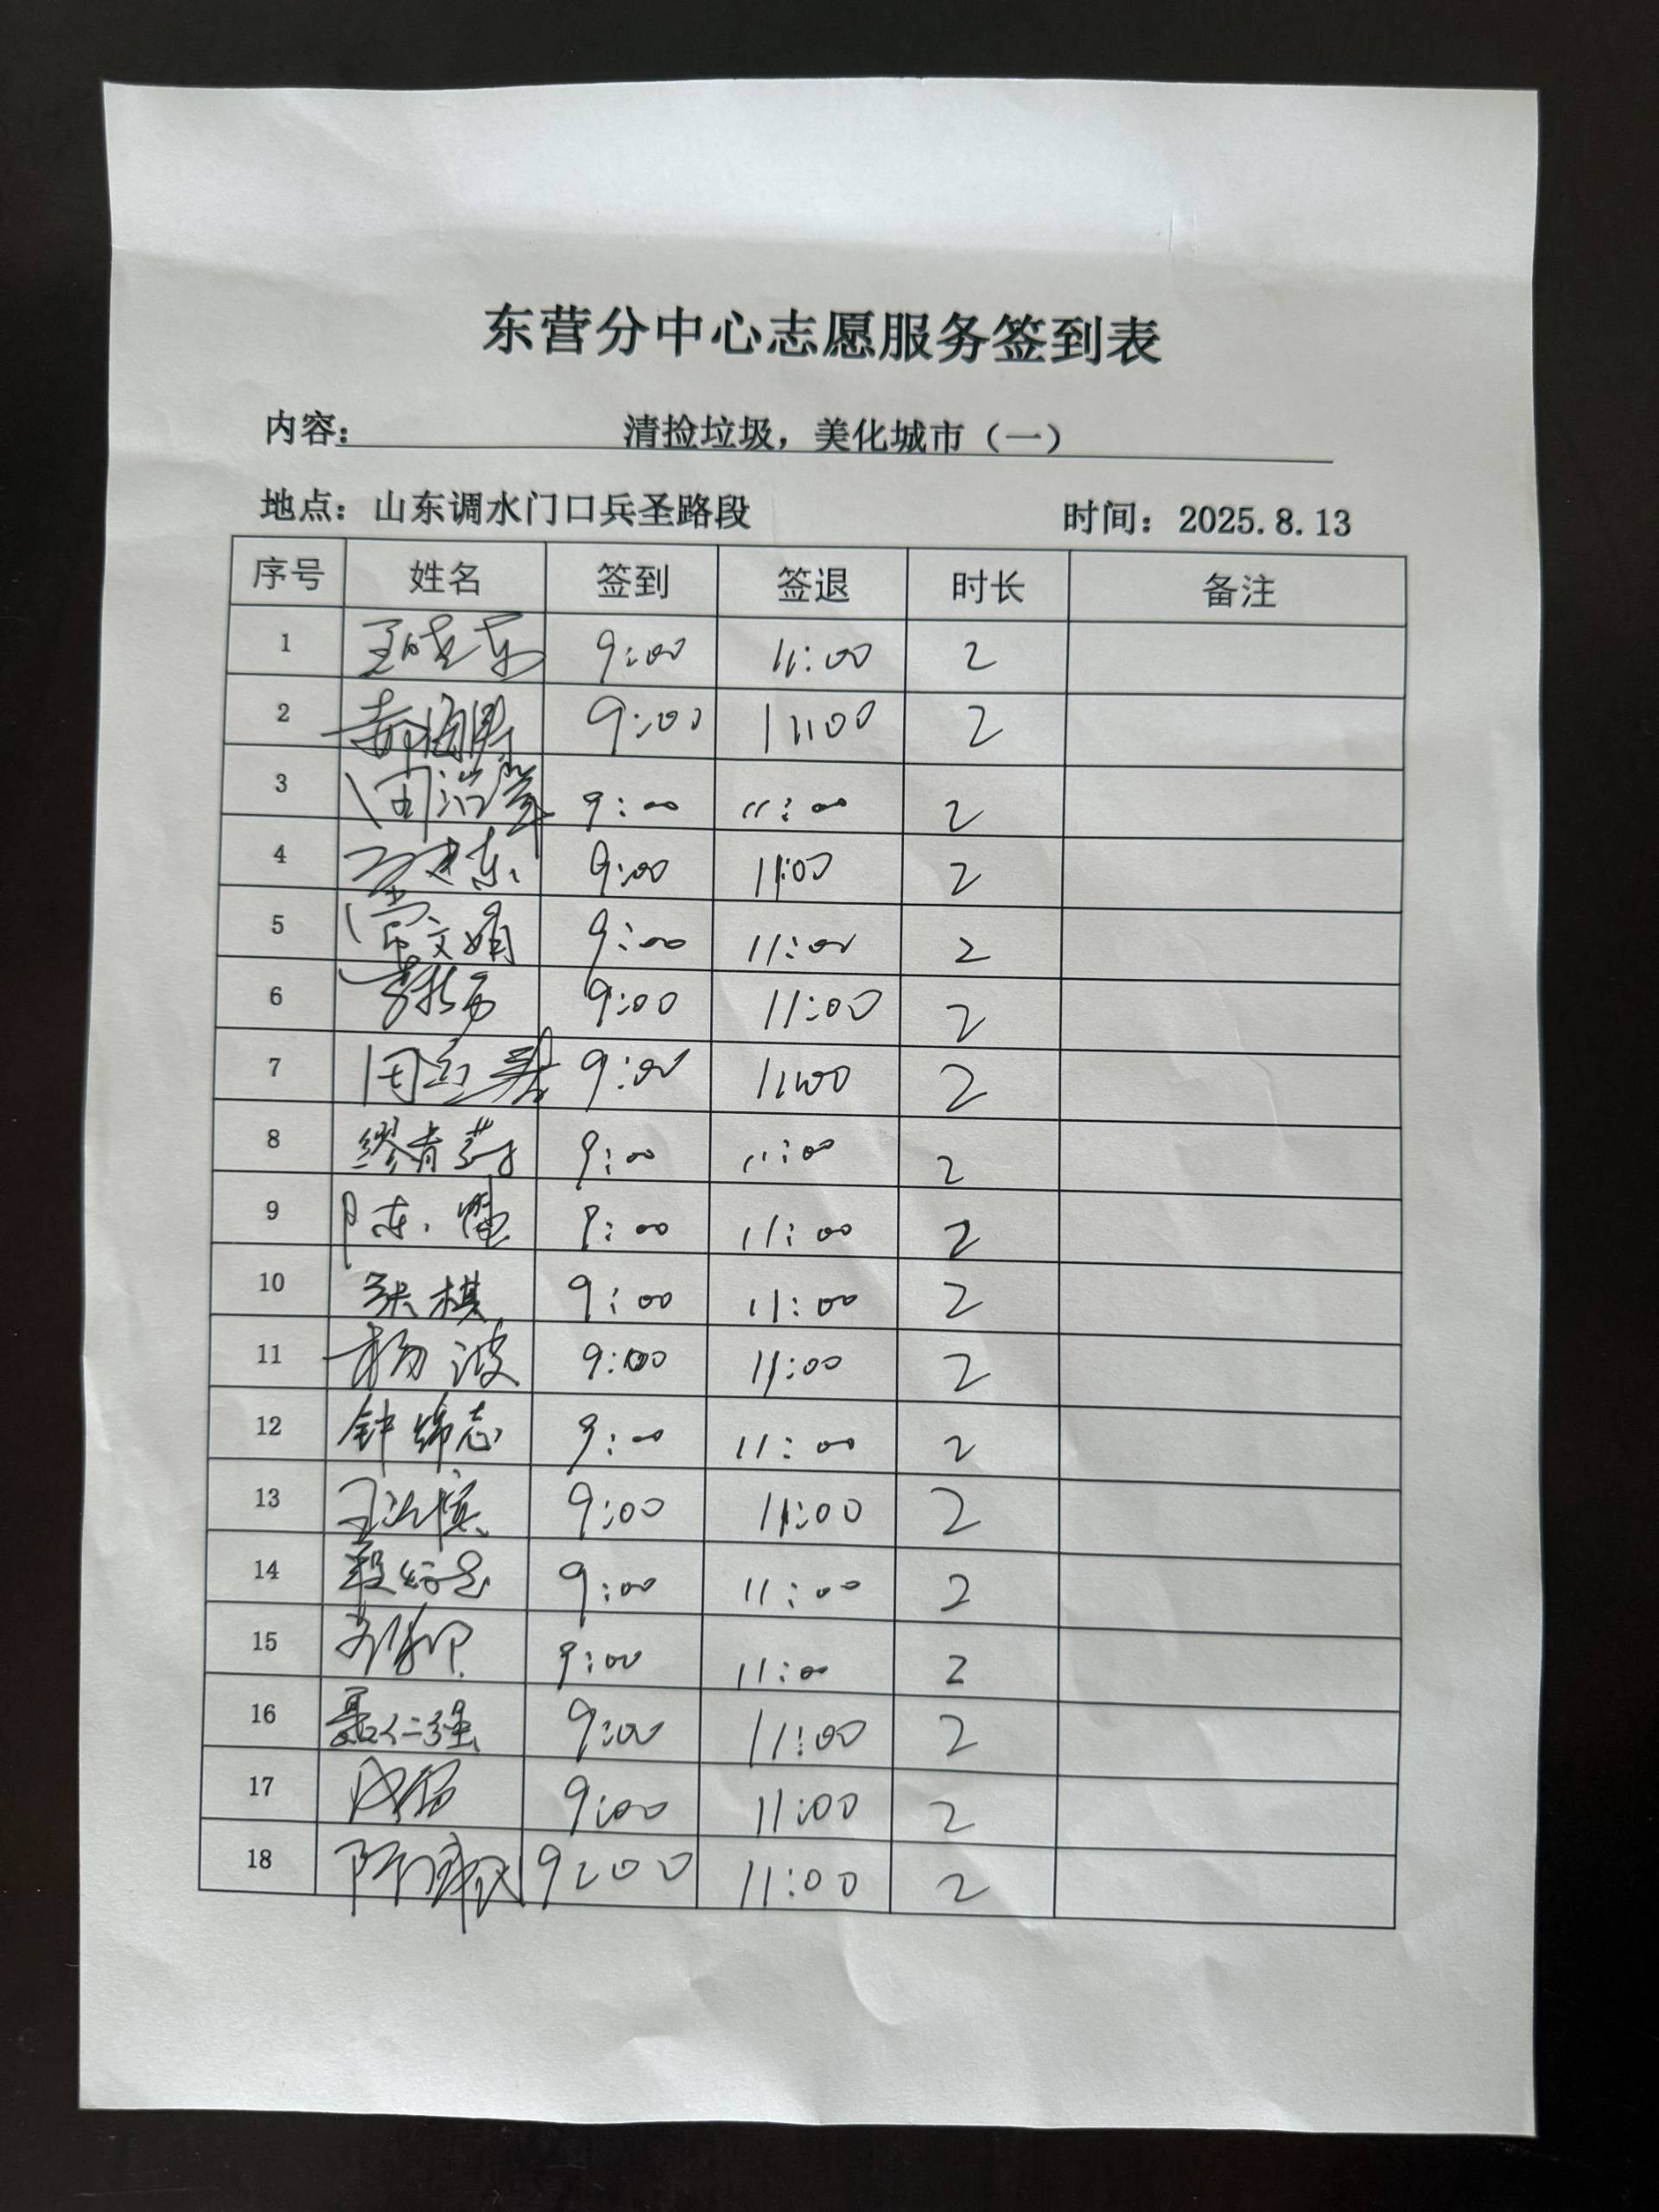 东营分中心志愿服务签到表
内容： 清捡垃圾，美化城市（一）
地点：山东调水门口兵圣路段 时间：2025.8.13
序号 姓名 签到 签退 时长 备注
1 王晓东 9:00 11:00 2
2 9:00 11:00 2
3 9:00 11:00 2
4 9:00 11:00 2
5 常文娟 9:00 11:00 2
6 9:00 11:00 2
7 9:00 11:00 2
8 缪青 9:00 11:00 2
9 陈 9:00 11:00 2
10 张棋 9:00 11:00 2
11 杨波 9:00 11:00 2
12 钟锦志 9:00 11:00 2
13 王 9:00 11:00 2
14 段 9:00 11:00 2
15 9:00 11:00 2
16 聂仁强 9:00 11:00 2
17 9:00 11:00 2
18 9:00 11:00 2